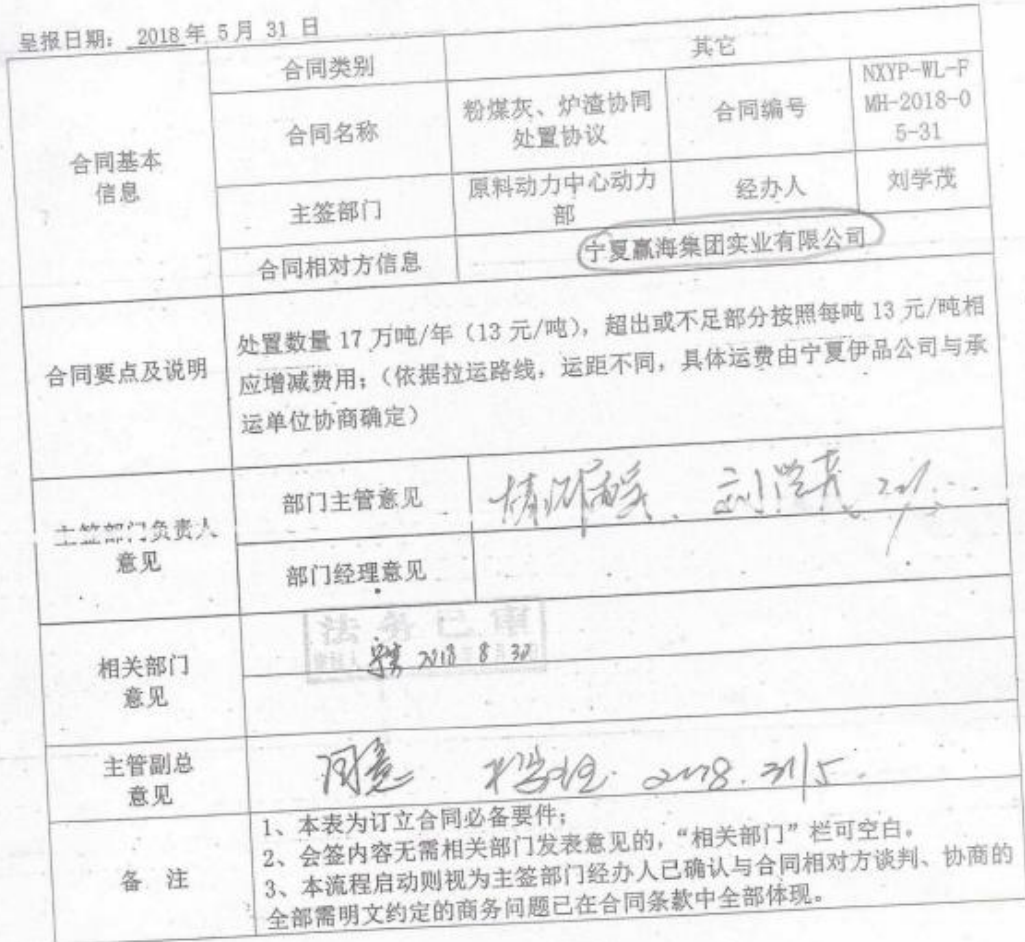 呈报日期: 2018 年 5 月 31 日
合同基本
信息
合同类别
其它
合同名称
粉煤灰、炉渣协同
处置协议
合同编号
NXYP-WL-F
MH-2018-0
5-31
主签部门
原料动力中心动力
部
经办人
刘学茂
合同相对方信息
宁夏赢海集团实业有限公司
合同要点及说明
处置数量 17 万吨/年（13 元/吨），超出或不足部分按照每吨 13 元/吨相
应增减费用；（依据拉运路线，运距不同，具体运费由宁夏伊品公司与承
运单位协商确定）
主签部门负责人
意见
部门主管意见
刘学茂
部门经理意见
相关部门
意见
法务已审
2018 8 30
主管副总
意见
同意
2018.31/5.
备 注
1、本表为订立合同必备要件；
2、会签内容无需相关部门发表意见的，“相关部门”栏可空白。
3、本流程启动则视为主签部门经办人已确认与合同相对方谈判、协商的
全部需明文约定的商务问题已在合同条款中全部体现。